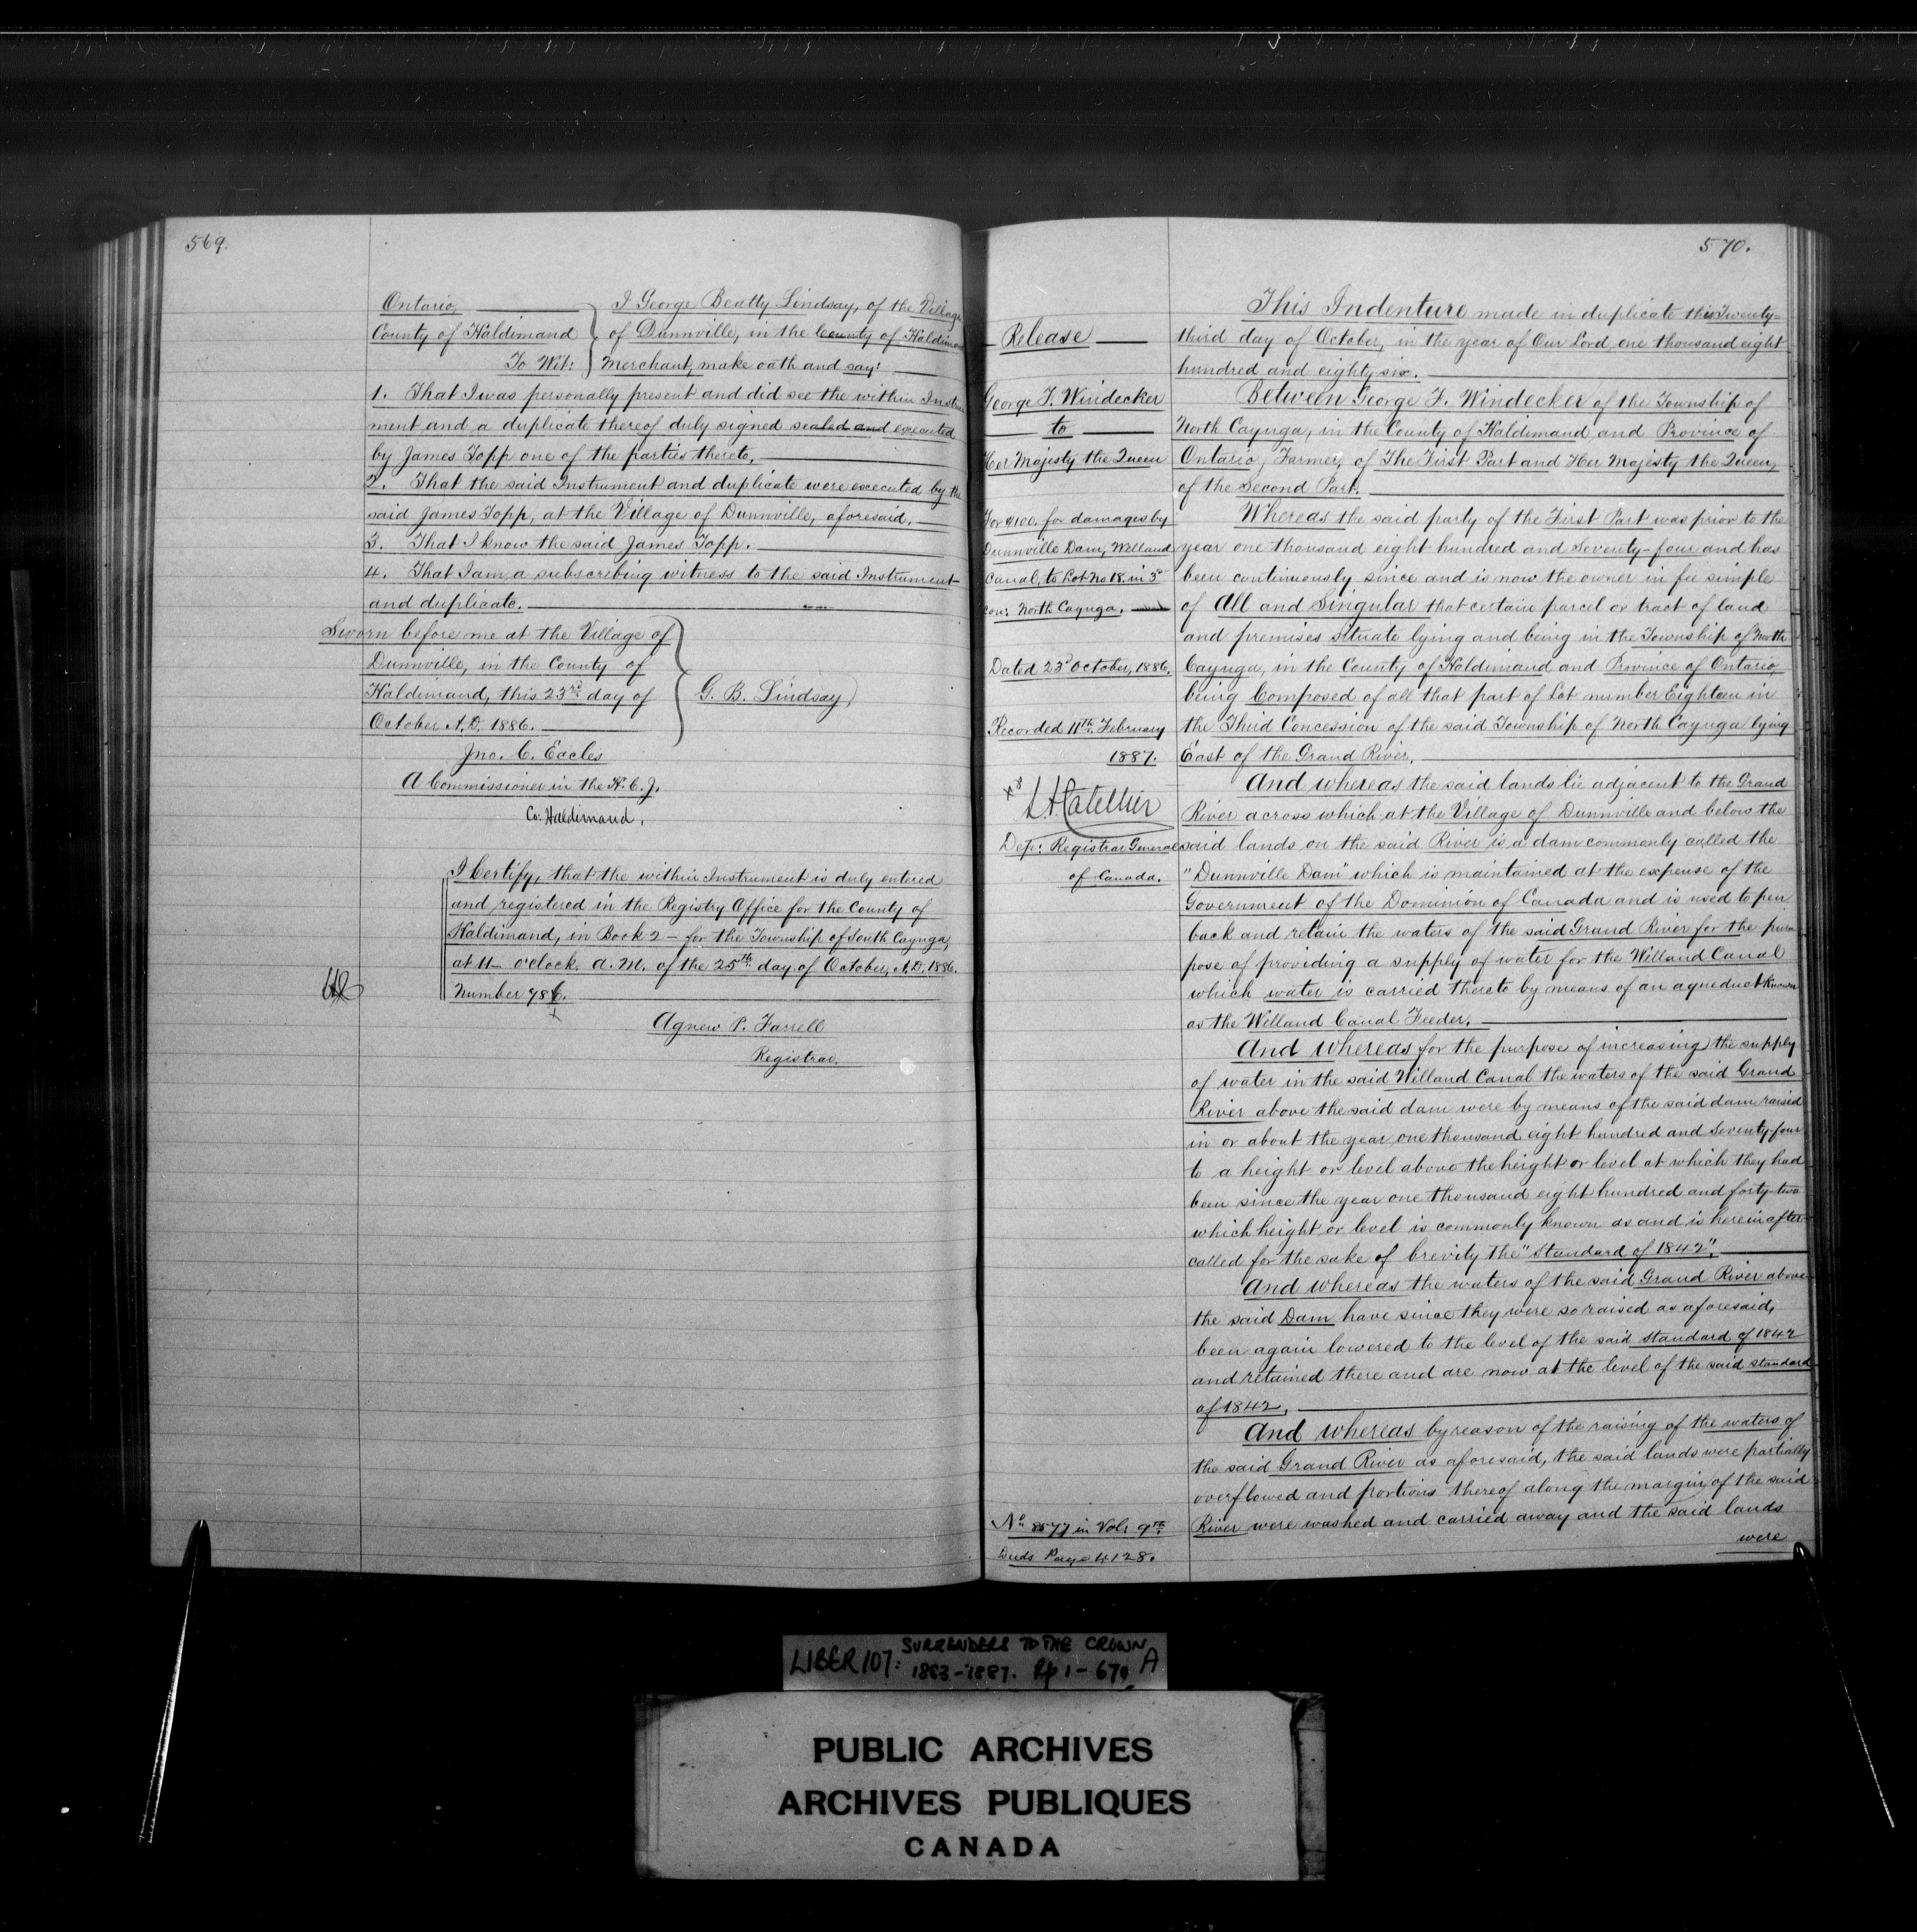 569.
Ontario,
County of Haldimand
To Wit:
I George Beatty Lindsay, of the Village
of Dunnville, in the County of Haldimand
Merchant, make oath and say:
1. That I was personally present and did see the within Instru
ment and a duplicate thereof duly signed sealed and executed
by James Topp one of the parties thereto,
2. That the said Instrument and duplicate were executed by the
said James Topp, at the Village of Dunnville, aforesaid,
3. That I know the said James Topp.
4. That I am a subscribing witness to the said Instrument
and duplicate.
Sworn before me at the Village of
Dunnville, in the County of
Haldimand, this 23rd day of
October A.D. 1886.
G. B. Lindsay
Jno. C. Eccles
A Commissioner in the H. C. J.
Co: Haldimand.
I Certify, that the within Instrument is duly entered
and registered in the Registry Office for the County of
Haldimand, in Book 2 - for the Township of South Cayuga,
at 11 o'clock. A.M. of the 25th day of October, A.D. 1886.
Number 986.
Agnew P. Farrell
Registrar.
570.
Release
George F. Windecker
to
Her Majesty the Queen
For $100. for damages by
Dunnville Dam, Welland
Canal, to Lot No 18. in 3d
con: North Cayuga.
Dated 23d October, 1886.
Recorded 11th February
1887.
Dep: Registrar General
of Canada.
No 8577 in Vol: 9th
Deeds Page 4128.
This Indenture made in duplicate this Twenty-
third day of October, in the year of Our Lord, one thousand eight
hundred and eighty six.
Between George F. Windecker of the Township of
North Cayuga, in the County of Haldimand and Province of
Ontario, Farmer, of The First Part and Her Majesty the Queen,
of the Second Part.
Whereas the said party of the First Part was prior to the
year one thousand eight hundred and Seventy-four and has
been continuously since and is now the owner in fee simple
of All and Singular that certain parcel or tract of land
and premises situate lying and being in the Township of North
Cayuga, in the County of Haldimand and Province of Ontario
being Composed of all that part of Lot number Eighteen in
the Third Concession of the said Township of North Cayuga lying
East of the Grand River.
And whereas the said lands lie adjacent to the Grand
River across which at the Village of Dunnville and below the
said lands on the said River is a dam commonly called the
"Dunnville Dam" which is maintained at the expense of the
Government of the Dominion of Canada and is used to pen
back and retain the waters of the said Grand River for the pur
pose of providing a supply of water for the Welland Canal
which water is carried thereto by means of an aqueduct known
as the Welland Canal Feeder.
And whereas for the purpose of increasing the supply
of water in the said Welland Canal the waters of the said Grand
River above the said dam were by means of the said dam raised
in or about the year one thousand eight hundred and Seventy four
to a height or level above the height or level at which they had
been since the year one thousand eight hundred and forty-two
which height or level is commonly known as and is hereinafter
called for the sake of brevity the "Standard of 1842".
And whereas the waters of the said Grand River above
the said Dam have since they were so raised as aforesaid,
been again lowered to the level of the said standard of 1842
and retained there and are now at the level of the said standard
of 1842.
And whereas by reason of the raising of the waters of
the said Grand River as aforesaid, the said lands were partially
overflowed and portions thereof along the margin of the said
River were washed and carried away and the said lands
were
LIBER 107: SURRENDERS TO THE CROWN
1883-1887. Pp 1-670 A
PUBLIC ARCHIVES
ARCHIVES PUBLIQUES
CANADA